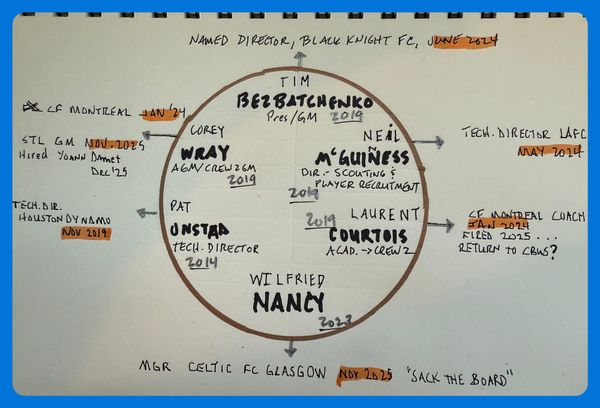 NAMED DIRECTOR, BLACK KNIGHT FC, JUNE 2024
TIM
BEZBATCHENKO
Pres/GM 2019
CF MONTREAL JAN '24
STL GM NOV. 2025
Hired YOANN DAMET
DEC '25
COREY
WRAY
AGM/CREW2GM
2019
NEIL
McGUIÑESS
DIR. - SCOUTING &
PLAYER RECRUITMENT
2019
TECH. DIRECTOR LAFC
MAY 2024
TECH. DIR.
HOUSTON DYNAMO
NOV 2019
PAT
ONSTAD
TECH. DIRECTOR
2014
2019 LAURENT
COURTOIS
ACAD. → CREW 2
CF MONTREAL COACH
JAN 2024
FIRED 2025 ...
RETURN TO CBUS?
WILFRIED
NANCY
2023
MGR CELTIC FC GLASGOW NOV 2025 "SACK THE BOARD"